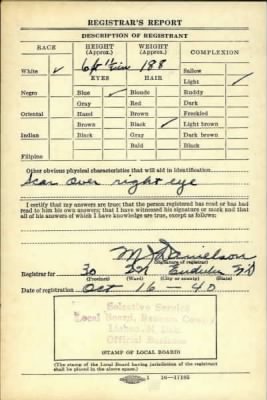 REGISTRAR'S REPORT
DESCRIPTION OF REGISTRANT
RACE HEIGHT (Approx.) WEIGHT (Approx.) COMPLEXION
White ✓ 6 ft 188 Sallow
EYES HAIR Light ✓
Negro Blue ✓ Blonde Ruddy
Gray Red Dark
Oriental Hazel Brown Freckled
Brown Black ✓ Light brown
Indian Black Gray Dark brown
Bald Black
Filipino
Other obvious physical characteristics that will aid in identification
Scar over right eye
I certify that my answers are true; that the person registered has read or has had
read to him his own answers; that I have witnessed his signature or mark and that
all of his answers of which I have knowledge are true, except as follows:
Danielson
(Signature of registrar)
Registrar for 30 N D
(Precinct) (Ward) (City or county) (State)
Date of registration Oct 16 - 40
Selective Service
Local Board, Ransom County
Lisbon, N. Dak.
Official Business
STAMP OF LOCAL BOARD
(The stamp of the Local Board having jurisdiction of the registrant
shall be placed in the above space.)
16—17105